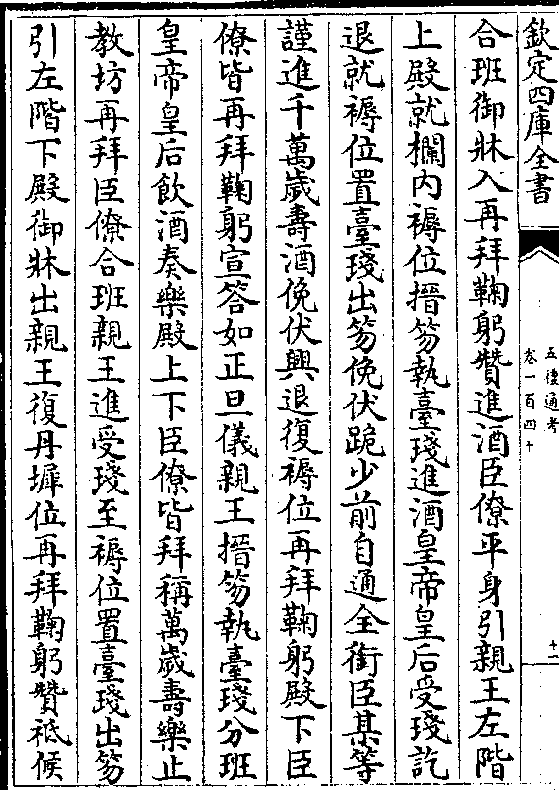 欽定四庫全書
五禮通考
卷一百四十
十一
合班御牀入再拜鞠躬贊進酒臣僚平身引親王左階
上殿就欄内褥位搢笏執臺琖進酒皇帝皇后受琖訖
退就褥位置臺琖出笏俛伏跪少前自通全銜臣某等
謹進千萬歲壽酒俛伏興退復褥位再拜鞠躬殿下臣
僚皆再拜鞠躬宣答如正旦儀親王搢笏執臺琖分班
皇帝皇后飲酒奏樂殿上下臣僚皆拜稱萬歲壽樂止
教坊再拜臣僚合班親王進受琖至褥位置臺琖出笏
引左階下殿御牀出親王復丹墀位再拜鞠躬贊祗候